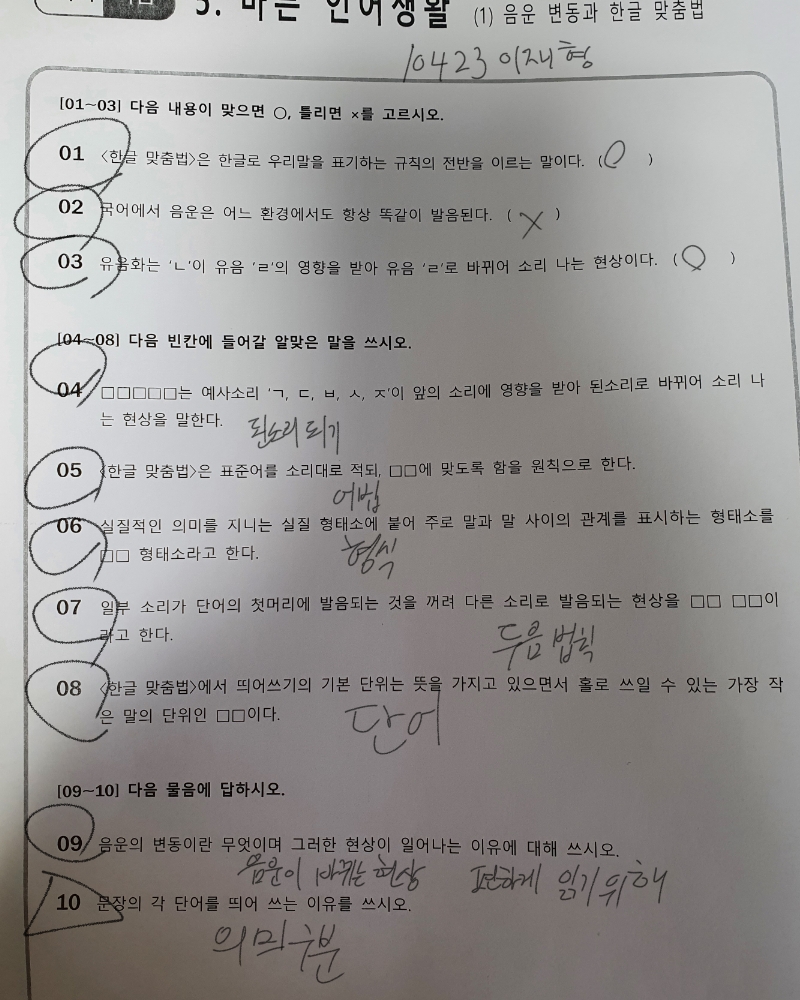 3. 바른 언어생활 (1) 음운 변동과 한글 맞춤법
10423 이재형
[01~03] 다음 내용이 맞으면 ○, 틀리면 ×를 고르시오.
01 〈한글 맞춤법〉은 한글로 우리말을 표기하는 규칙의 전반을 이르는 말이다. (○)
02 국어에서 음운은 어느 환경에서도 항상 똑같이 발음된다. (×)
03 유음화는 'ㄴ'이 유음 'ㄹ'의 영향을 받아 유음 'ㄹ'로 바뀌어 소리 나는 현상이다. (○)
[04~08] 다음 빈칸에 들어갈 알맞은 말을 쓰시오.
04 □□□□□는 예사소리 'ㄱ, ㄷ, ㅂ, ㅅ, ㅈ'이 앞의 소리에 영향을 받아 된소리로 바뀌어 소리 나
는 현상을 말한다.
된소리 되기
05 〈한글 맞춤법〉은 표준어를 소리대로 적되, □□에 맞도록 함을 원칙으로 한다.
어법
06 실질적인 의미를 지니는 실질 형태소에 붙어 주로 말과 말 사이의 관계를 표시하는 형태소를
□□ 형태소라고 한다.
형식
07 일부 소리가 단어의 첫머리에 발음되는 것을 꺼려 다른 소리로 발음되는 현상을 □□ □□이
라고 한다.
두음 법칙
08 〈한글 맞춤법〉에서 띄어쓰기의 기본 단위는 뜻을 가지고 있으면서 홀로 쓰일 수 있는 가장 작
은 말의 단위인 □□이다.
단어
[09~10] 다음 물음에 답하시오.
09 음운의 변동이란 무엇이며 그러한 현상이 일어나는 이유에 대해 쓰시오.
음운이 바뀌는 현상 편하게 읽기 위해
10 문장의 각 단어를 띄어 쓰는 이유를 쓰시오.
의미 구분